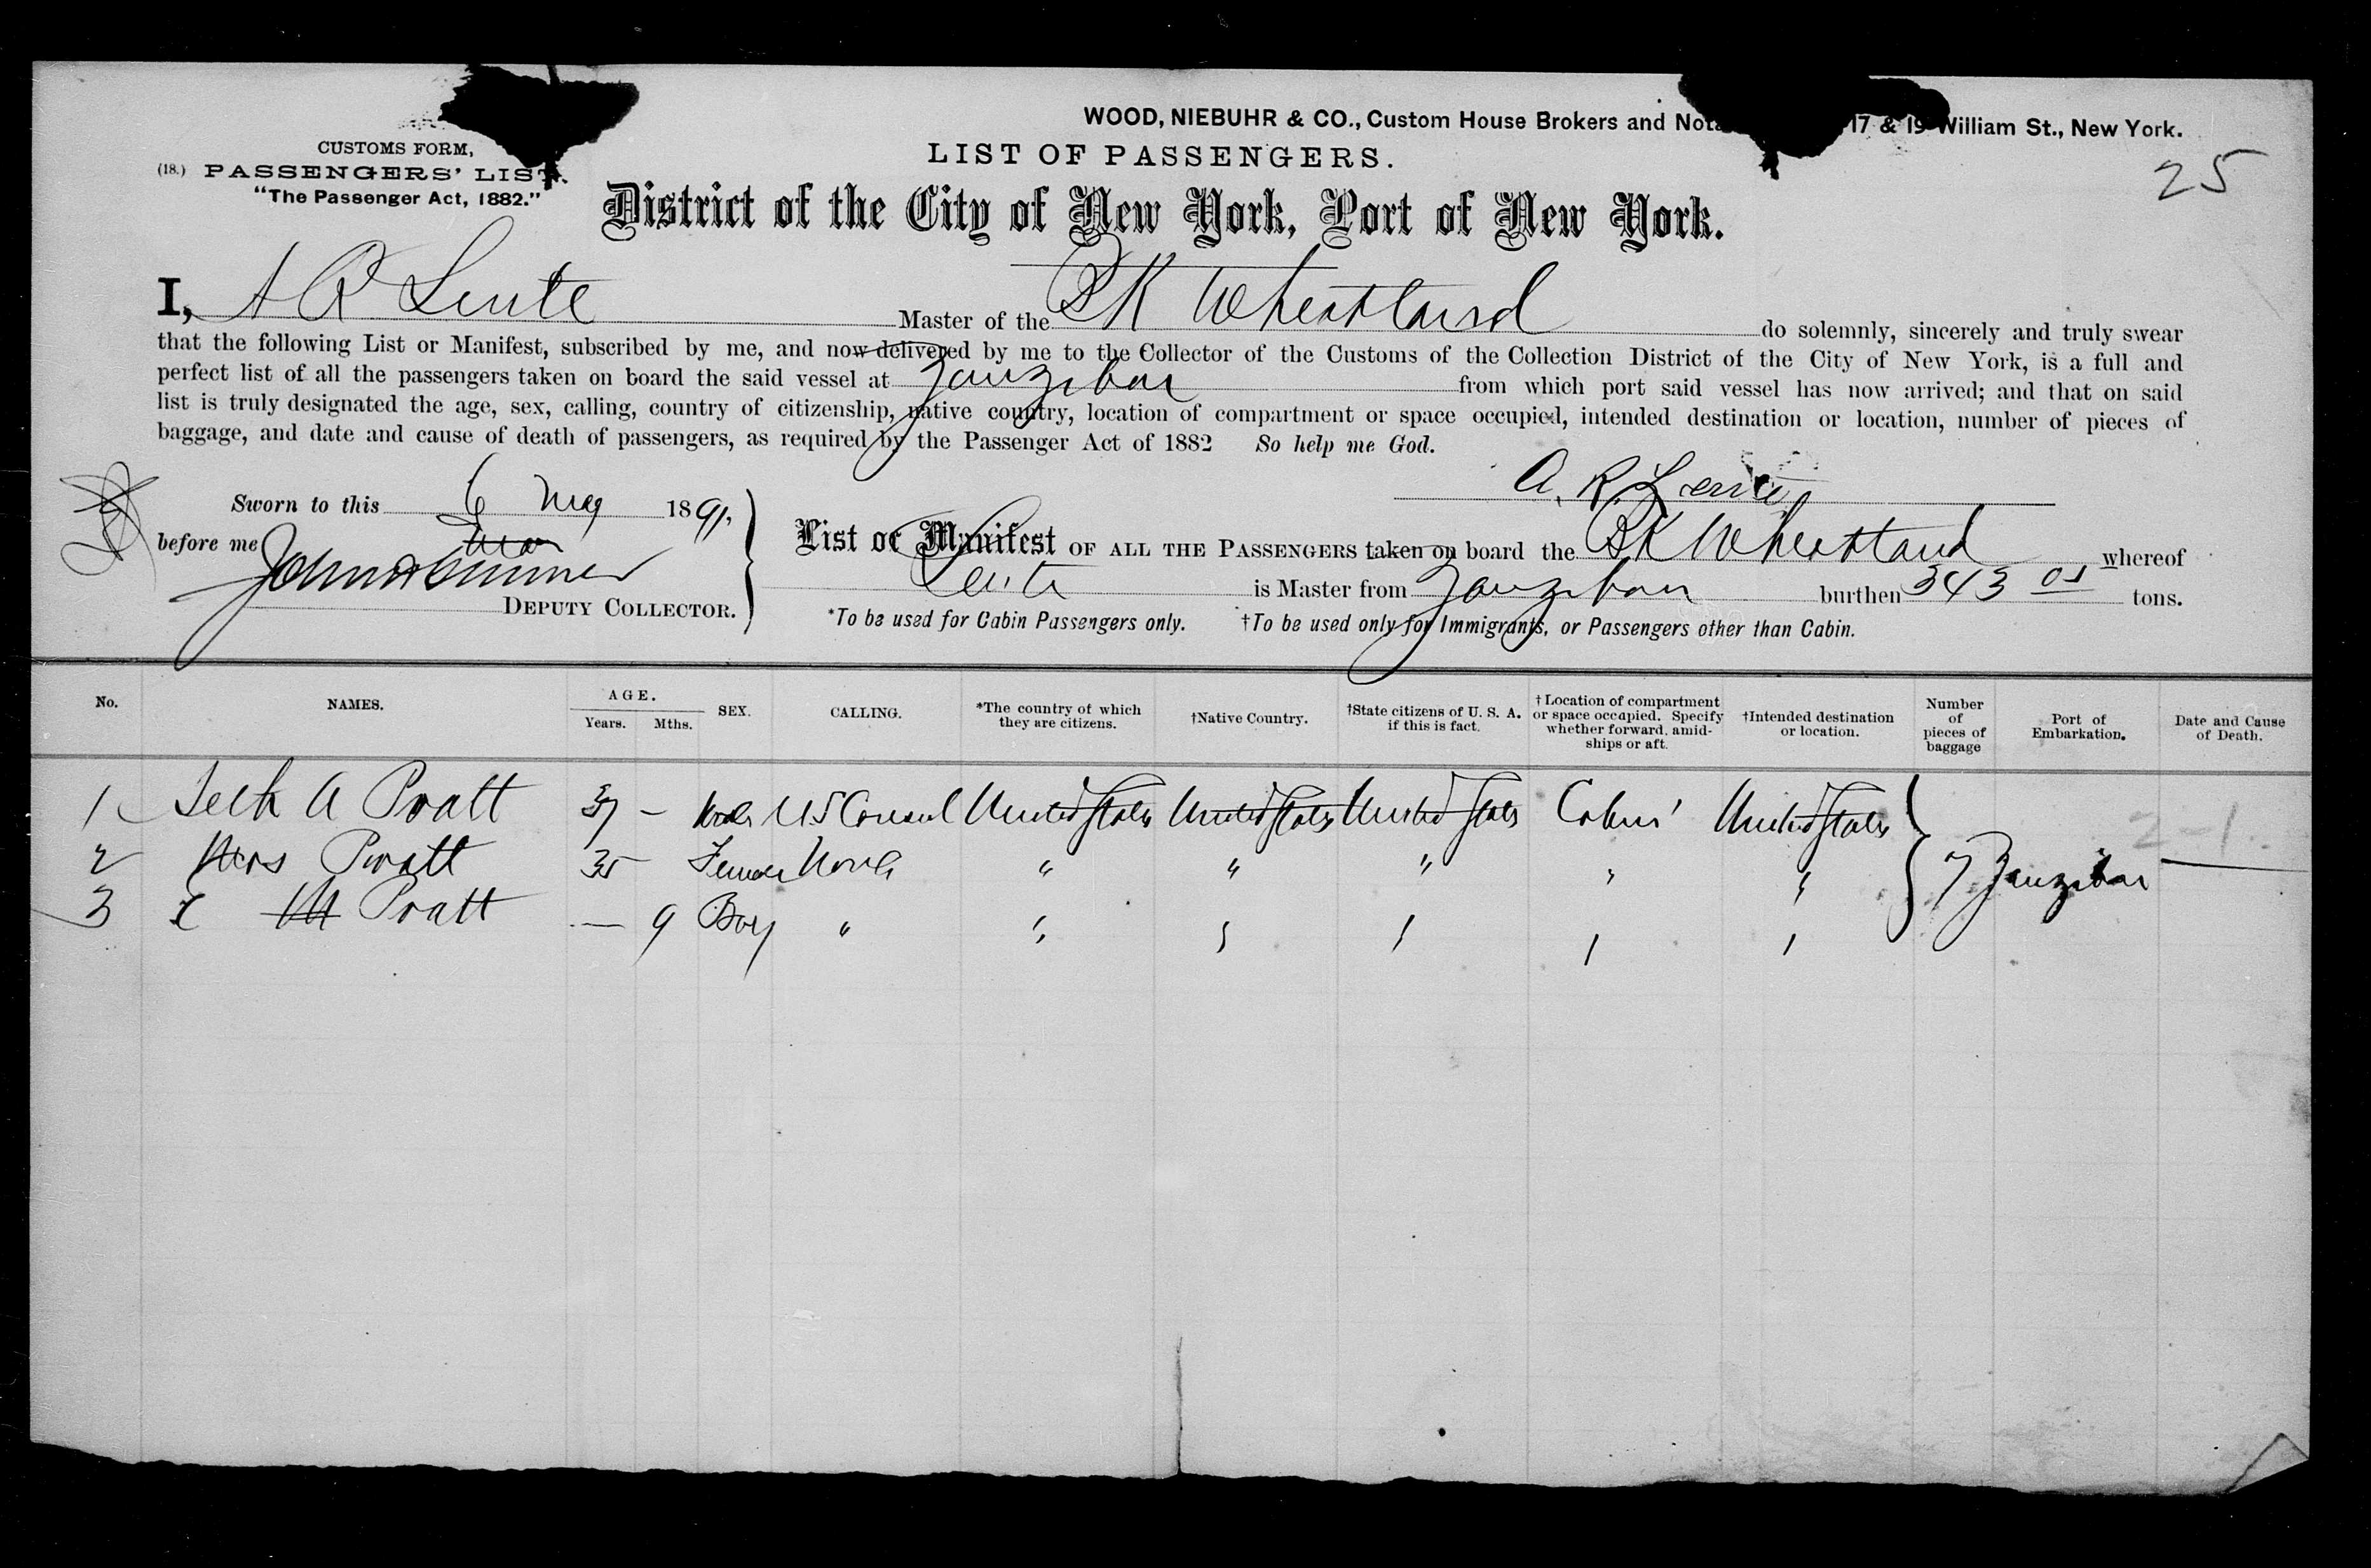 WOOD, NIEBUHR & CO., Custom House Brokers and 17 & 19 William St., New York.
CUSTOMS FORM,
(18.) PASSENGERS' LIST.
"The Passenger Act, 1882."
LIST OF PASSENGERS.
25
District of the City of New York, Port of New York.
I, A R Leute Master of the Wheatland do solemnly, sincerely and truly swear
that the following List or Manifest, subscribed by me, and now delivered by me to the Collector of the Customs of the Collection District of the City of New York, is a full and
perfect list of all the passengers taken on board the said vessel at Zanzibar from which port said vessel has now arrived; and that on said
list is truly designated the age, sex, calling, country of citizenship, native country, location of compartment or space occupied, intended destination or location, number of pieces of
baggage, and date and cause of death of passengers, as required by the Passenger Act of 1882 So help me God.
A. R.
Sworn to this 6 May 1891.
before me
DEPUTY COLLECTOR.
List or Manifest OF ALL THE PASSENGERS taken on board the Wheatland whereof
is Master from Zanzibar burthen 343 tons.
*To be used for Cabin Passengers only. †To be used only for Immigrants, or Passengers other than Cabin.
No. NAMES. AGE. Years. Mths. SEX. CALLING. *The country of which they are citizens. †Native Country. †State citizens of U. S. A. if this is fact. †Location of compartment or space occupied. Specify whether forward, amidships or aft. †Intended destination or location. Number of pieces of baggage Port of Embarkation. Date and Cause of Death.
1 Seth A Pratt 37 – Male US Consul United States United States United States Cabin United States
2 Mrs Pratt 35 – Female None " " " " " 7 Zanzibar
3 Pratt — 9 Boy " " " " " "
2-1